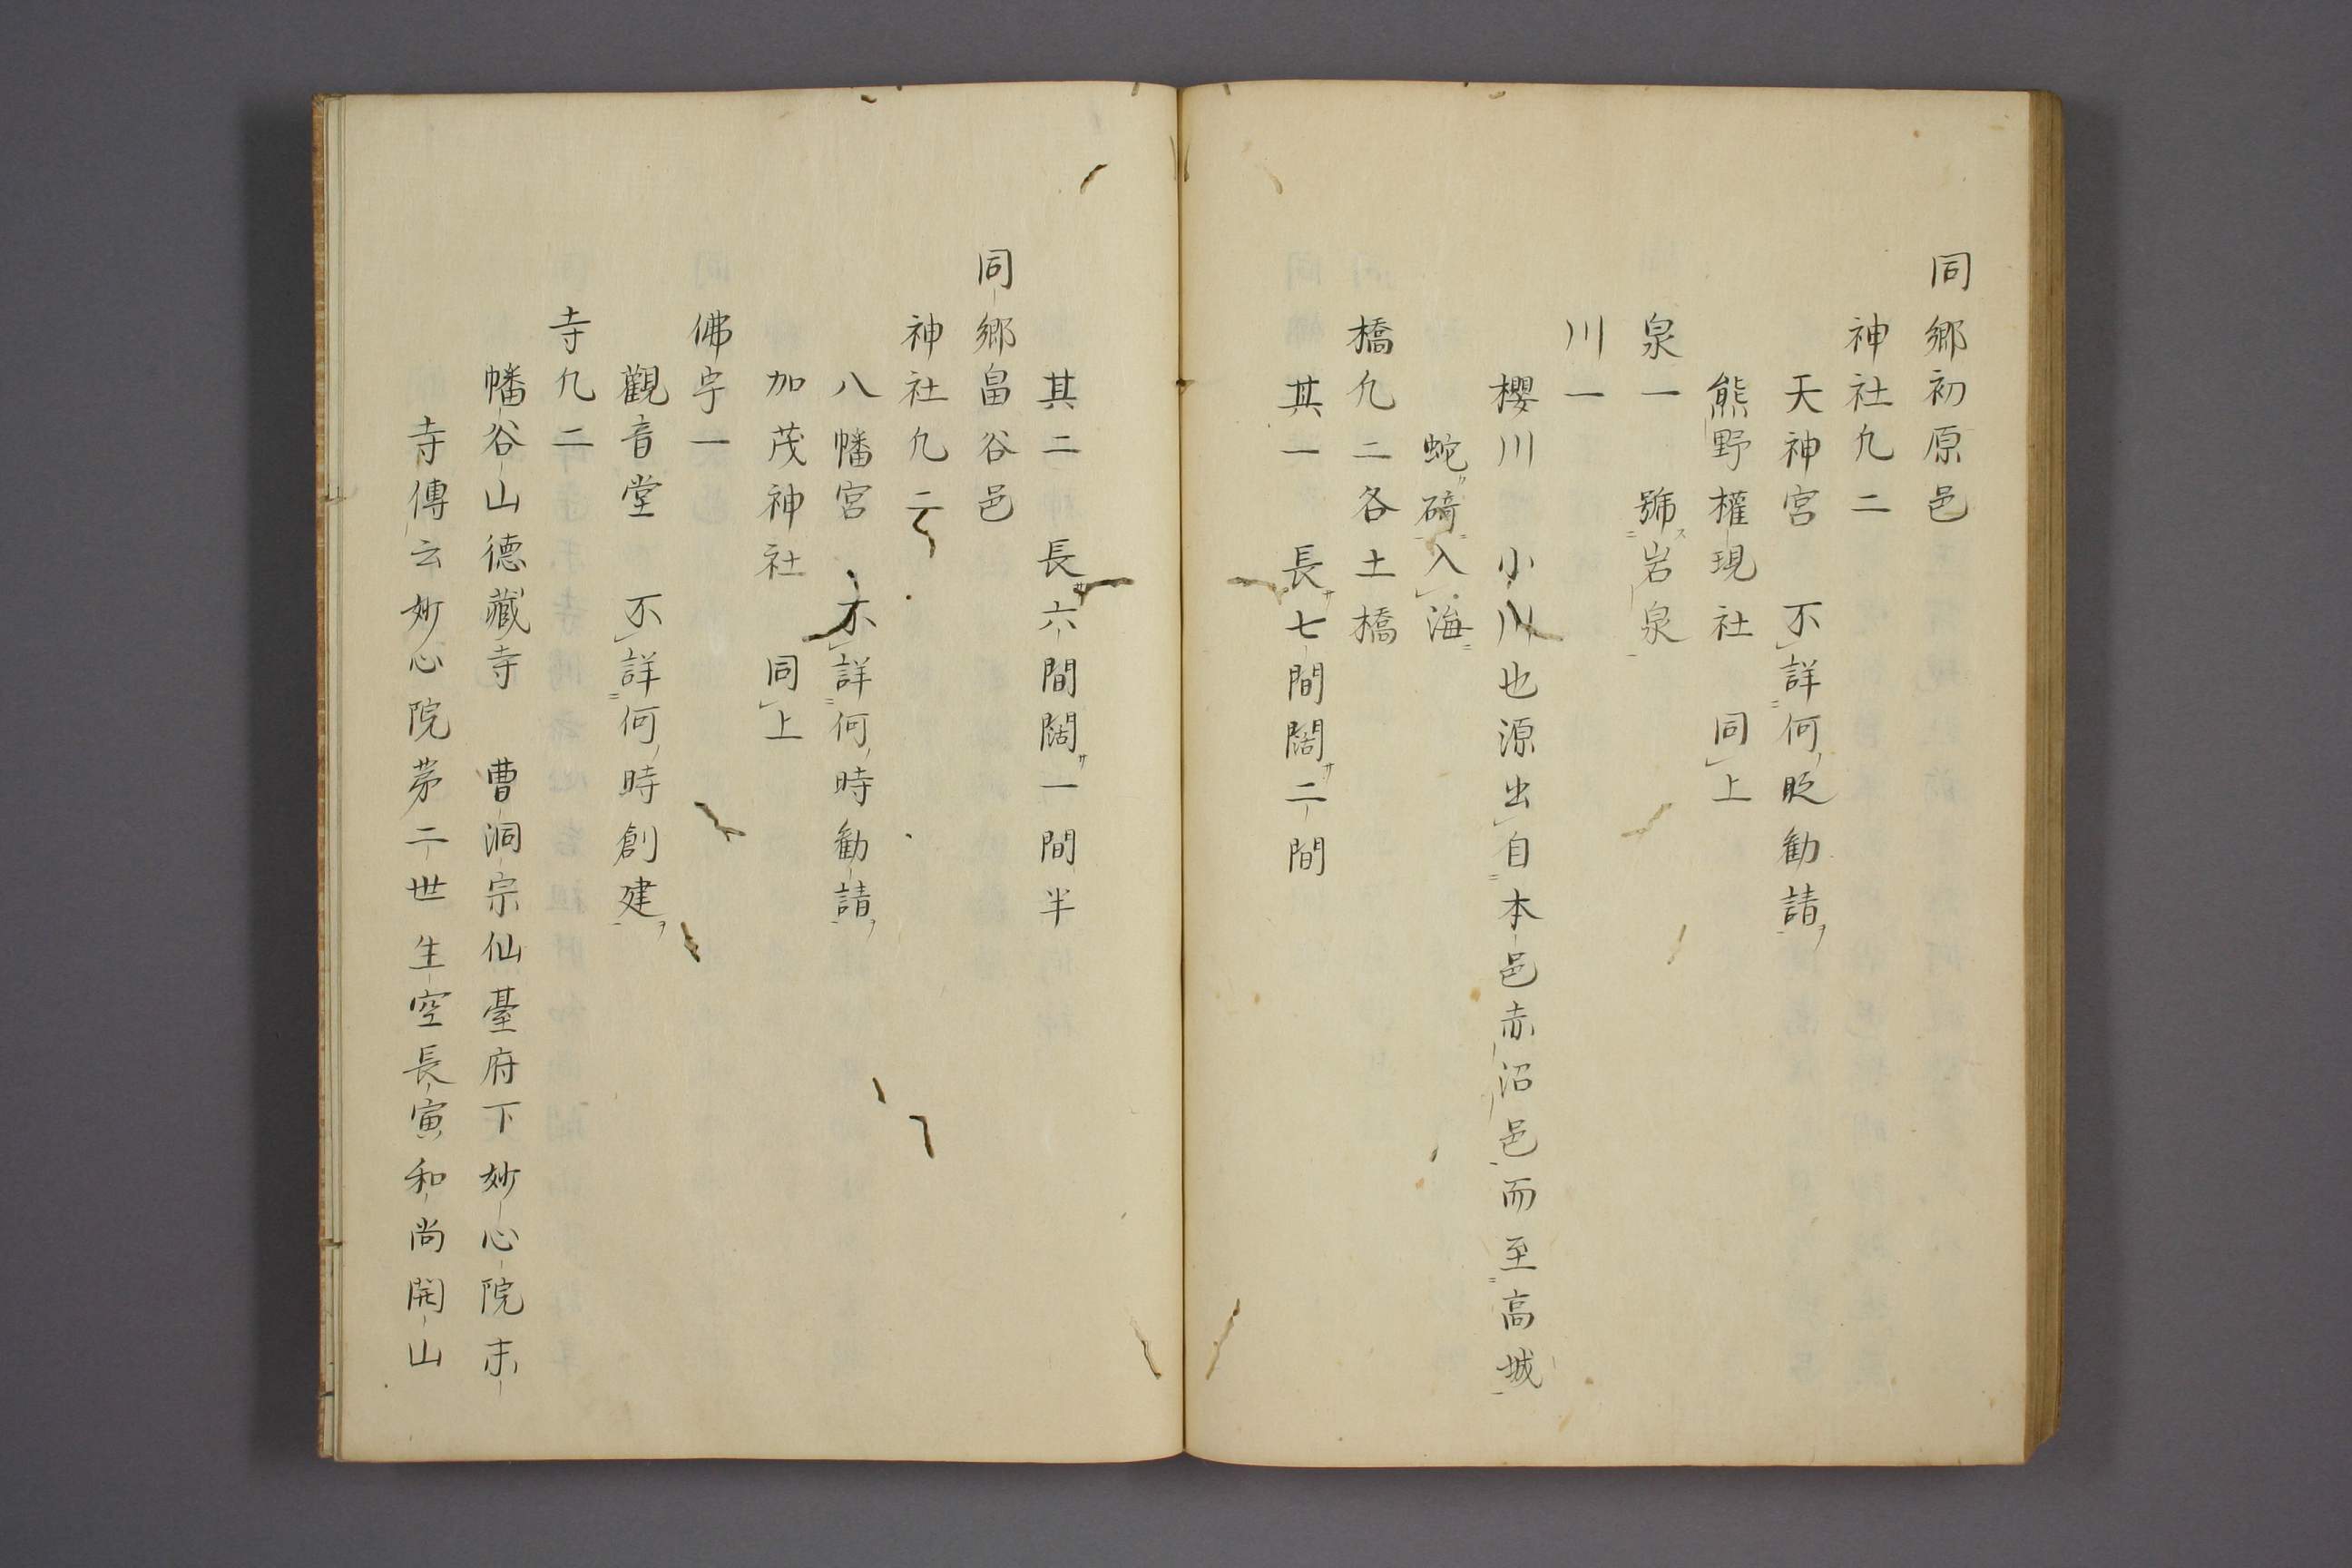 同郷初原邑
神社凢二
天神宮　不詳何時勧請
熊野權現社　同上
泉一　號岩泉
川一
櫻川　小川也源出自本邑赤沼邑而至高城
蛇﨑入海
橋凢二各土橋
其一　長サ七間闊サ二間
其二　長サ六間闊サ一間半
同郷畠谷邑
神社凢二
八幡宮　不詳何時勧請
加茂神社　同上
佛宇一
觀音堂　不詳何時創建
寺凢二
幡谷山德藏寺　曹洞宗仙臺府下妙心院末
寺傳云妙心院茅二世生空長寅和尚開山